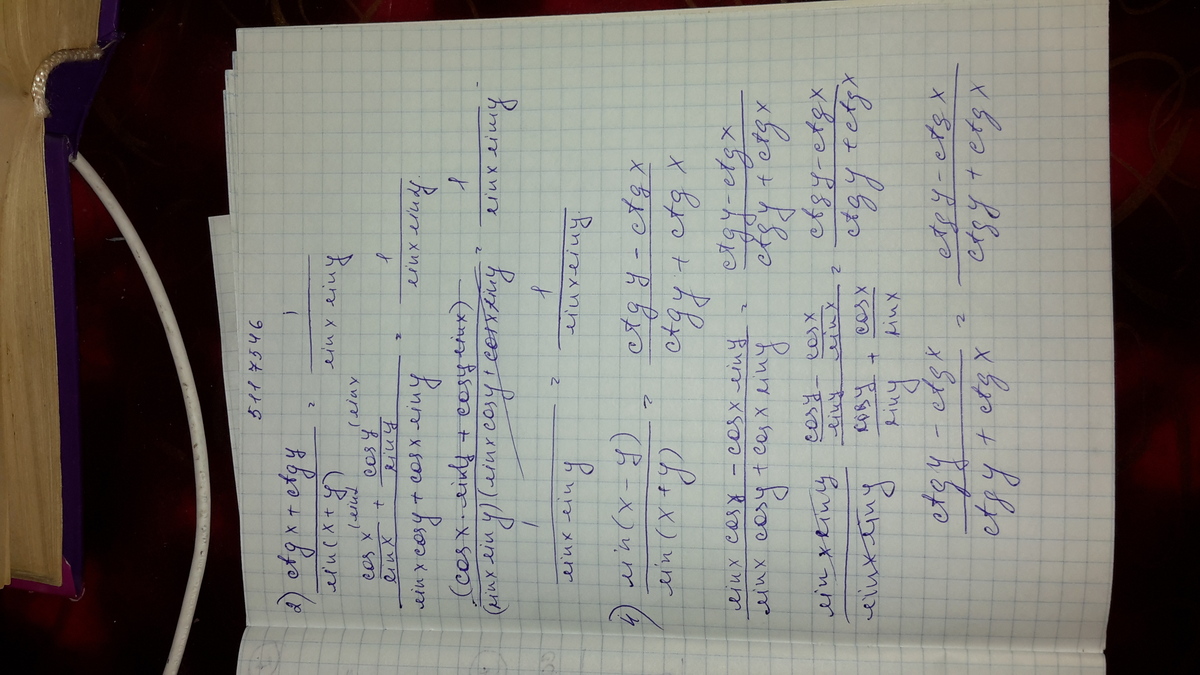 5117546
2) (ctg x + ctg y) / sin(x + y) = 1 / (sin x sin y)
(cos x / sin x (sin y + cos y / sin y (sin x) / (sin x cos y + cos x sin y) = 1 / (sin x sin y)
(cos x · sin y + cos y sin x) / ((sin x sin y)(sin x cos y + cos x sin y)) = 1 / (sin x sin y)
1 / (sin x sin y) = 1 / (sin x sin y)
4) sin(x - y) / sin(x + y) = (ctg y - ctg x) / (ctg y + ctg x)
(sin x cos y - cos x sin y) / (sin x cos y + cos x sin y) = (ctg y - ctg x) / (ctg y + ctg x)
(sin x sin y) / (sin x sin y) (cos y / sin y - cos x / sin x) / (cos y / sin y + cos x / sin x) = (ctg y - ctg x) / (ctg y + ctg x)
(ctg y - ctg x) / (ctg y + ctg x) = (ctg y - ctg x) / (ctg y + ctg x)